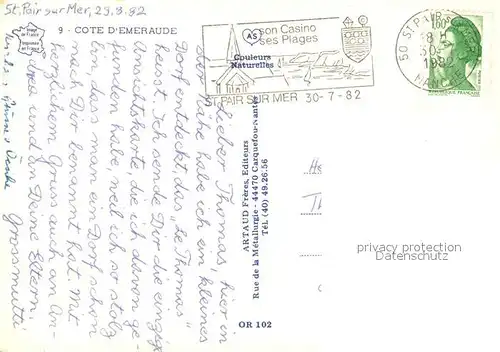 St. Pair sur Mer, 29.8.82
9 - COTE D'EMERAUDE
Couleurs
Naturelles
son Casino
ses Plages
ST PAIR SUR MER 30-7-82
50 ST PAIR
8 H
30-7
1982
MANCHE
1,80
Lieber Thomas, hier in
der Nähe habe ich ein kleines
Dorf entdeckt, das "Le Thomas"
heisst. Ich sende Dir die einzige
Ansichtskarte, die ich davon ge-
funden habe, weil ich so stolz
bin, dass man ein Dorf schon
nach Dir benannt hat. Mit
herzlichem Gruss auch an An-
drea und an Deine Eltern.
Grossmutti
ARTAUD Frères, Editeurs
Rue de la Métallurgie - 44470 Carquefou-Nantes
Tél. (40) 49.26.56
OR 102
privacy protection
Datenschutz